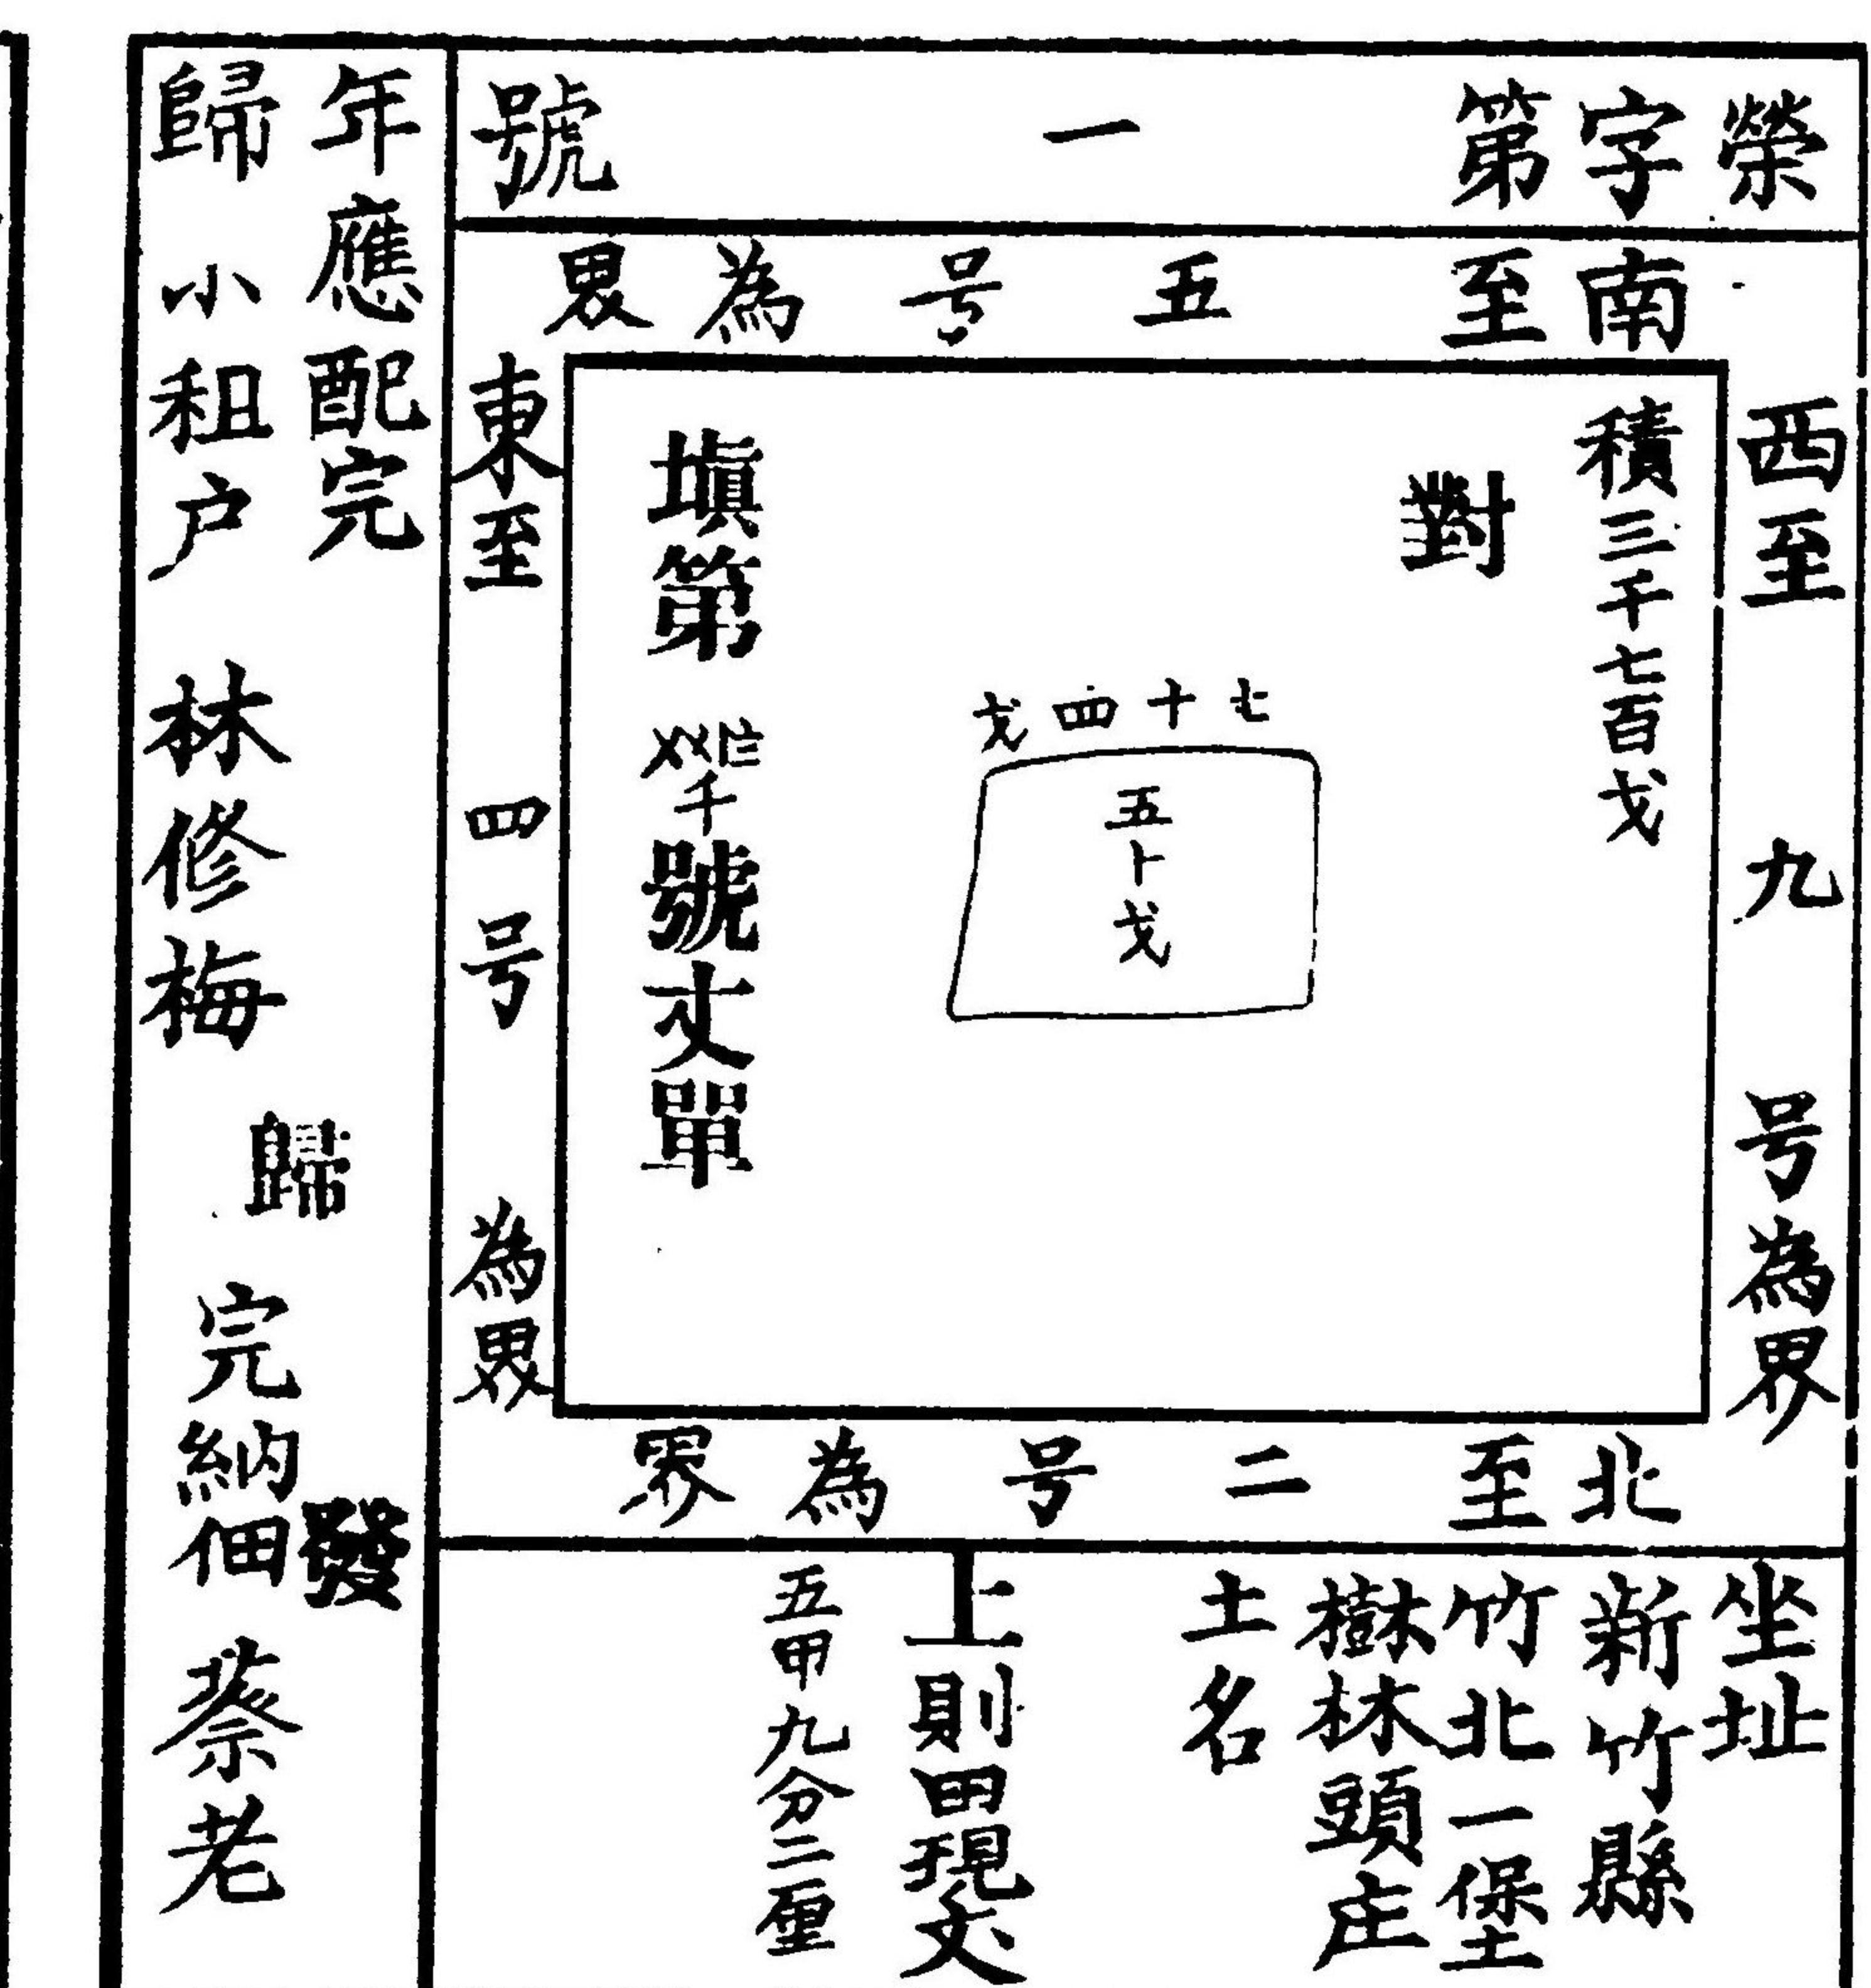 榮字第一號
南至五号為界
西至九号為界
積三千七百戈
對
七十四戈
五十戈
填第
號丈單
東至四号為界
北至二号為界
坐址
新竹縣
竹北一堡
樹林頭庄
土名
上則田現丈
五甲九分二厘
年應配完
歸
發
歸小租户林修梅完納佃蔡老